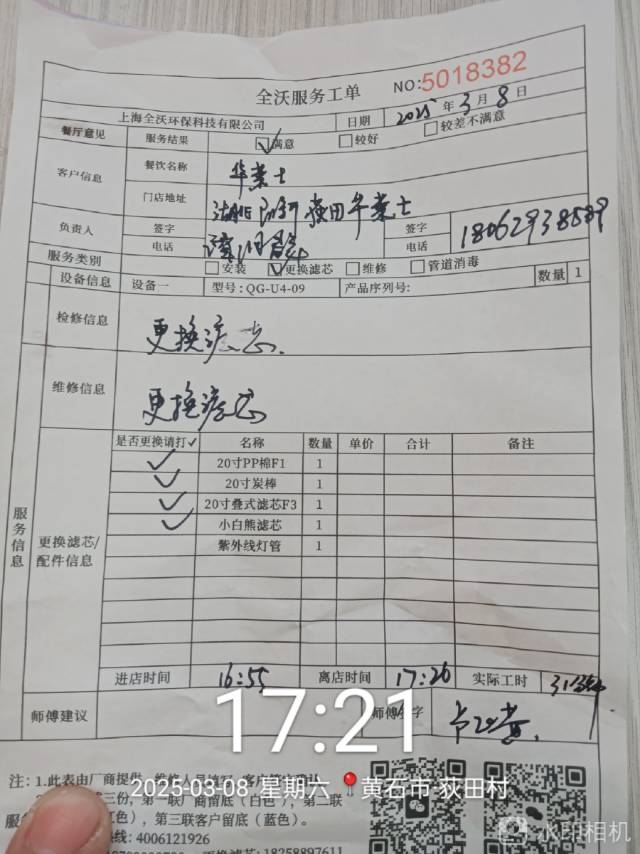 全沃服务工单 NO:5018382
上海全沃环保科技有限公司 日期 2025年3月8日
餐厅意见 服务结果 满意 较好 较差不满意
客户信息 餐饮名称 华莱士
门店地址 湖北 荻田华莱士
负责人 签字 签字
电话 电话 18062938589
服务类别 安装 更换滤芯 维修 管道消毒
设备信息 设备一 型号:QG-U4-09 产品序列号: 数量 1
检修信息 更换滤芯.
维修信息 更换滤芯
是否更换请打✓ 名称 数量 单价 合计 备注
✓ 20寸PP棉F1 1
✓ 20寸炭棒 1
✓ 20寸叠式滤芯F3 1
✓ 小白熊滤芯 1
紫外线灯管 1
服务信息
更换滤芯/
配件信息
进店时间 16:55 离店时间 17:26 实际工时
师傅建议 师傅签字
17:21
2025-03-08 星期六 黄石市·荻田村
注: 1.此表由厂商提供
三份，第一联厂商留底(白色)，第二联
红色)，第三联客户留底(蓝色)。
热线: 4006121926
18258897611
水印相机